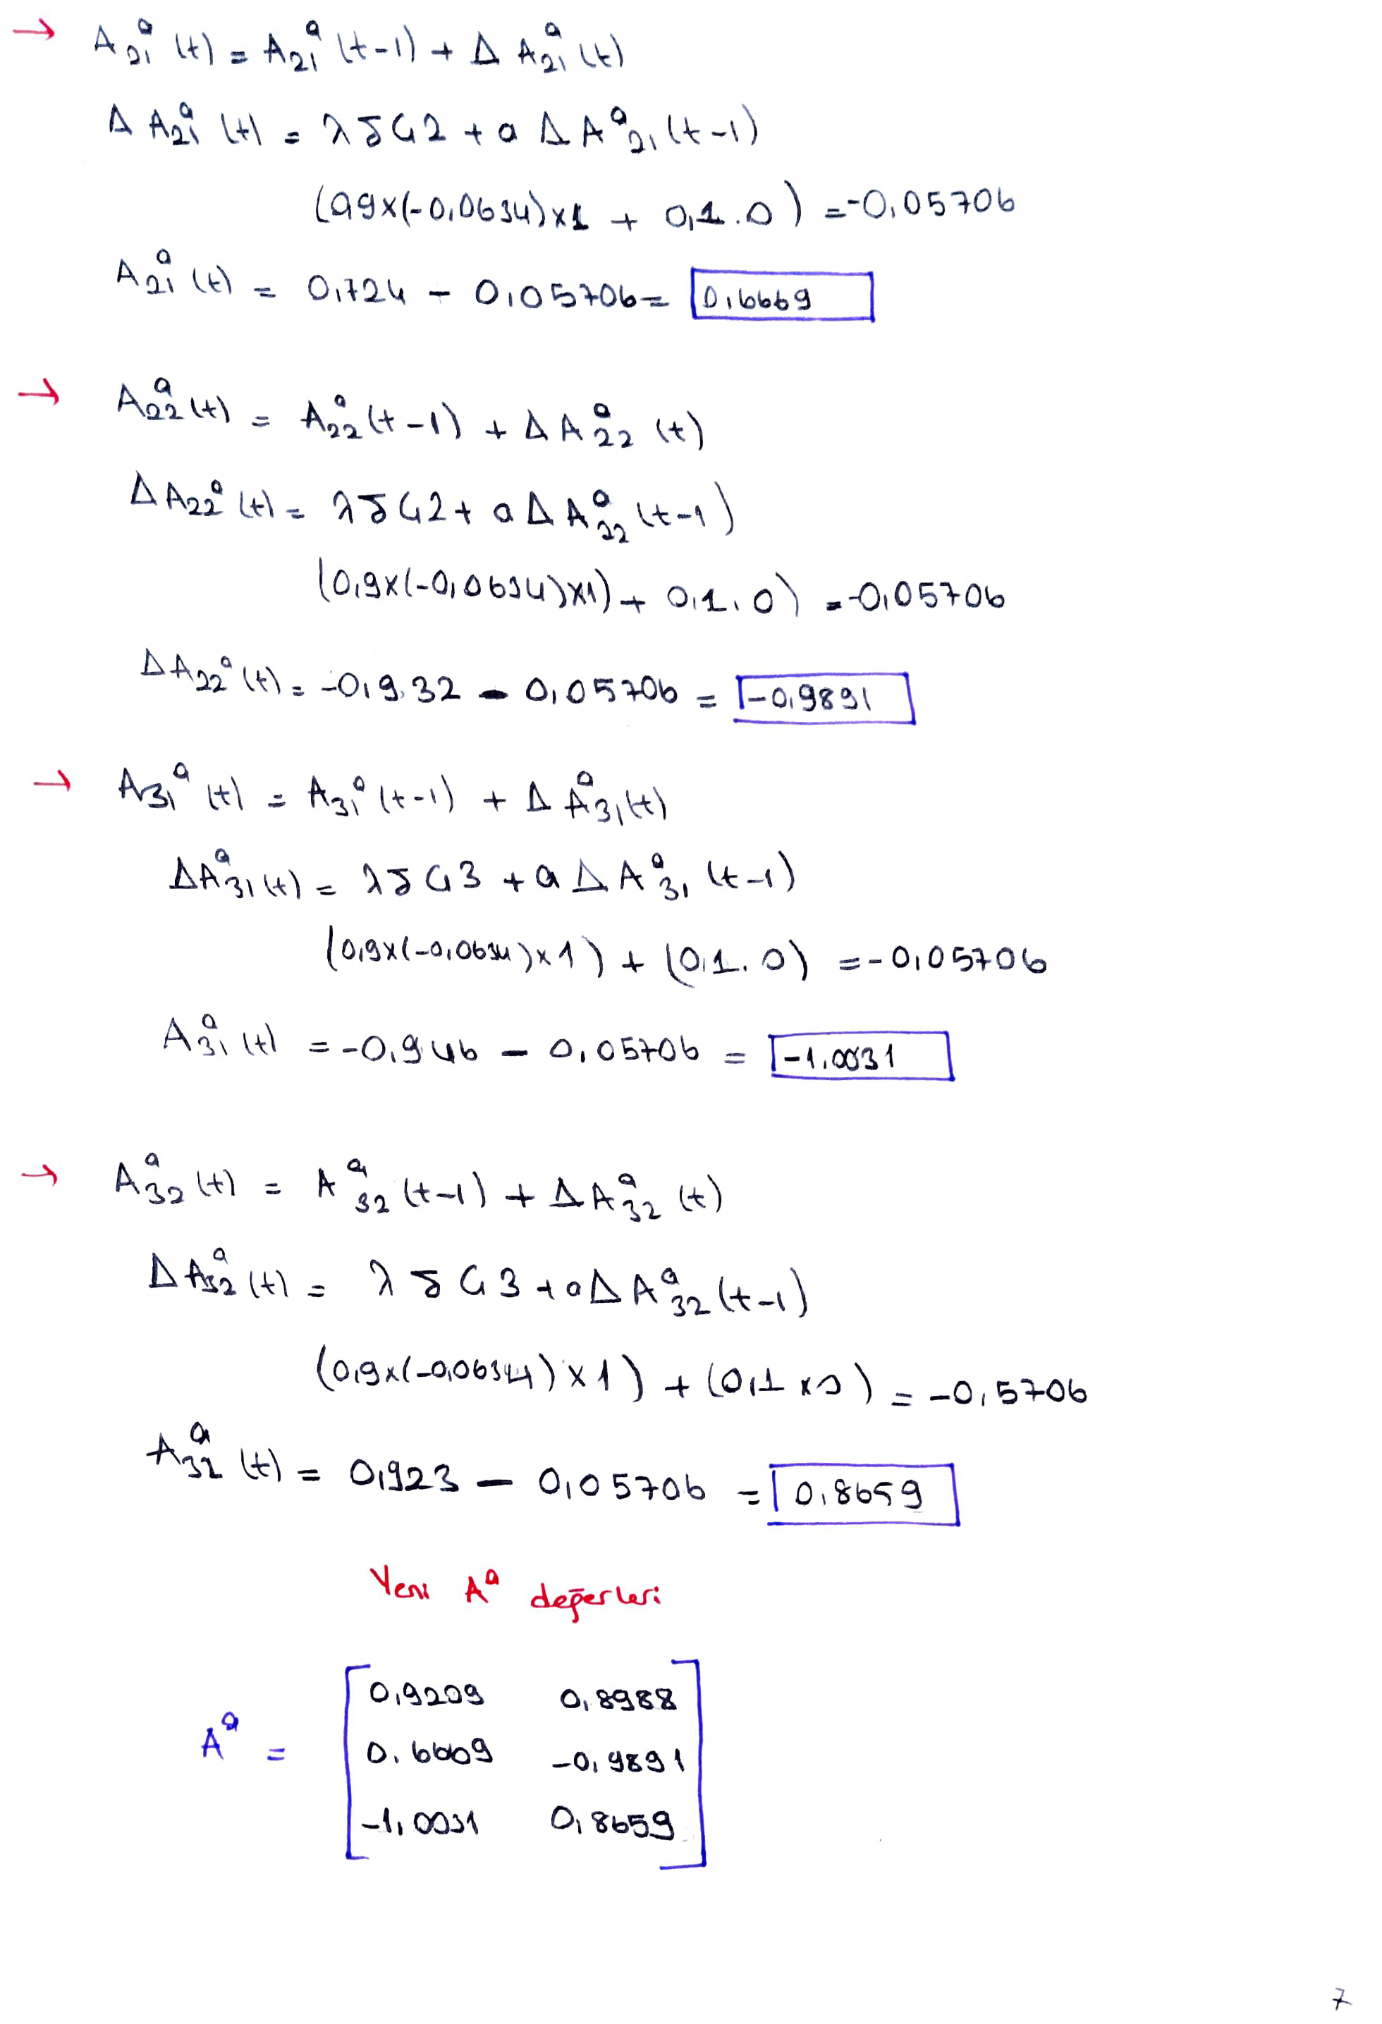 → A₂₁ᵃ (t) = A₂₁ᵃ (t-1) + Δ A₂₁ᵃ (t)
Δ A₂₁ᵃ (t) = λ δ G2 + a Δ Aᵃ₂₁ (t-1)
(0,9x(-0,0634)x1 + 0,1.0) = -0,05706
A₂₁ᵃ (t) = 0,724 - 0,05706 = 0,6669
→ A₂₂ᵃ (t) = A₂₂ᵃ (t-1) + Δ A₂₂ᵃ (t)
Δ A₂₂ᵃ (t) = λ δ G2 + a Δ A₂₂ᵃ (t-1)
(0,9x(-0,0634)x1) + 0,1.0) = -0,05706
Δ A₂₂ᵃ (t) = -0,932 - 0,05706 = -0,9891
→ A₃₁ᵃ (t) = A₃₁ᵃ (t-1) + Δ A₃₁ᵃ (t)
Δ A₃₁ᵃ (t) = λ δ G3 + a Δ A₃₁ᵃ (t-1)
(0,9x(-0,0634)x1) + (0,1.0) = -0,05706
A₃₁ᵃ (t) = -0,946 - 0,05706 = -1,0031
→ A₃₂ᵃ (t) = A₃₂ᵃ (t-1) + Δ A₃₂ᵃ (t)
Δ A₃₂ᵃ (t) = λ δ G3 + a Δ A₃₂ᵃ (t-1)
(0,9x(-0,0634)x1) + (0,1x0) = -0,5706
A₃₂ᵃ (t) = 0,923 - 0,05706 = 0,8659
Yeni Aᵃ değerleri
0,9209 0,8988
Aᵃ = 0.6669 -0,9891
-1,0031 0,8659
7